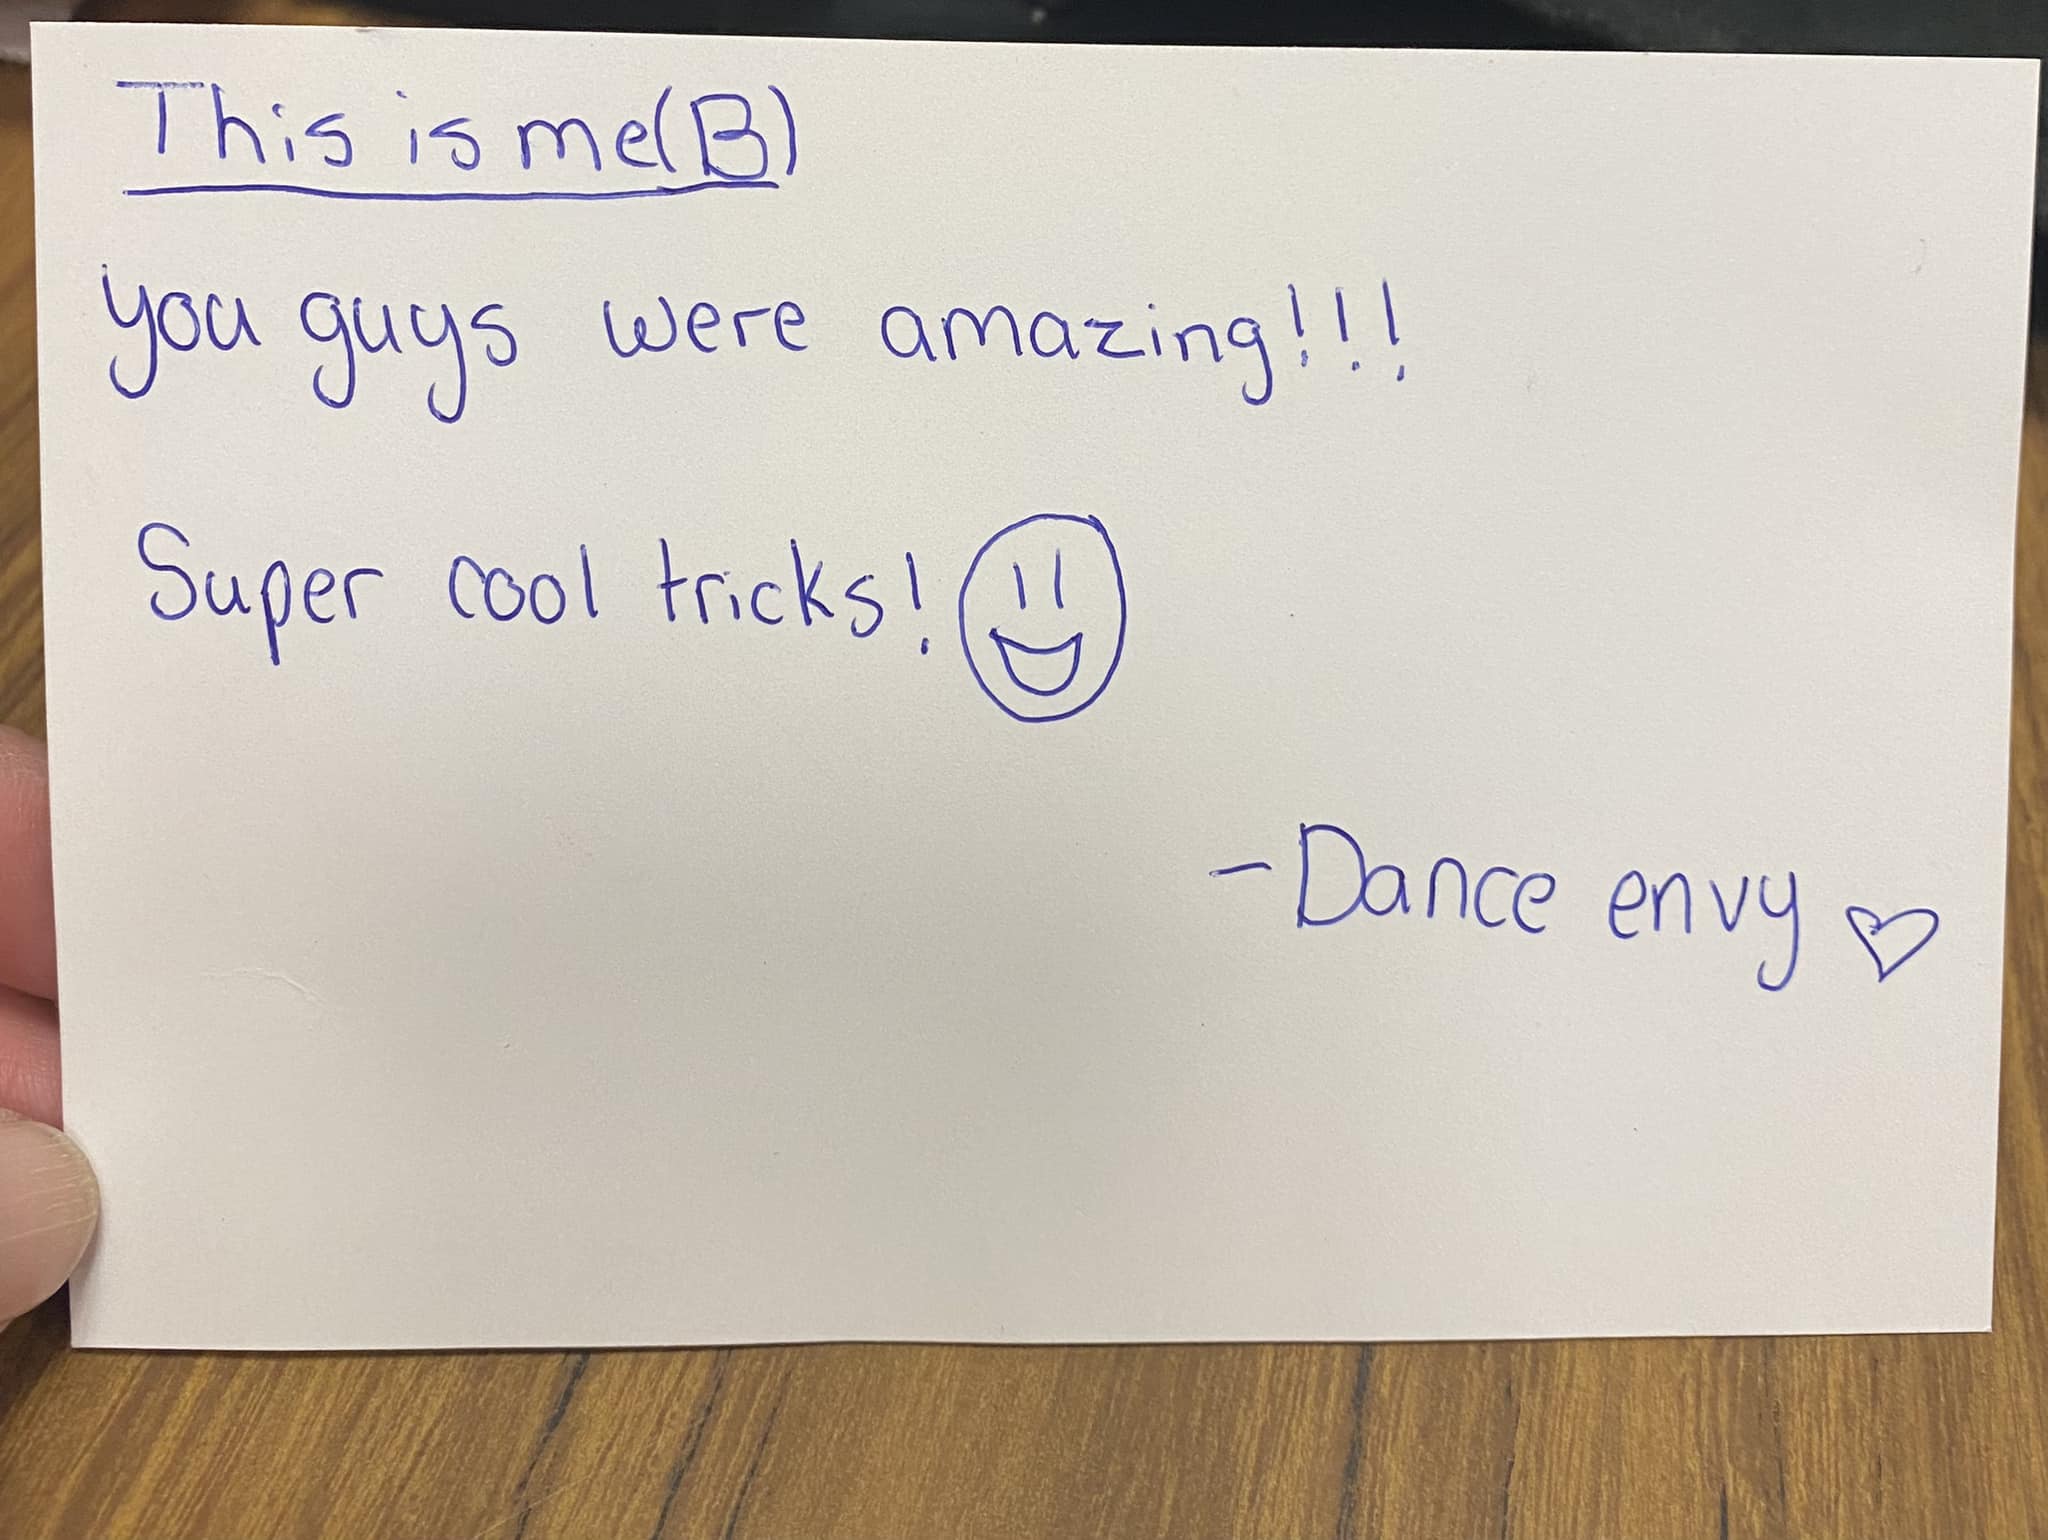 This is me(B)
you guys were amazing!!!
Super cool tricks!
-Dance envy